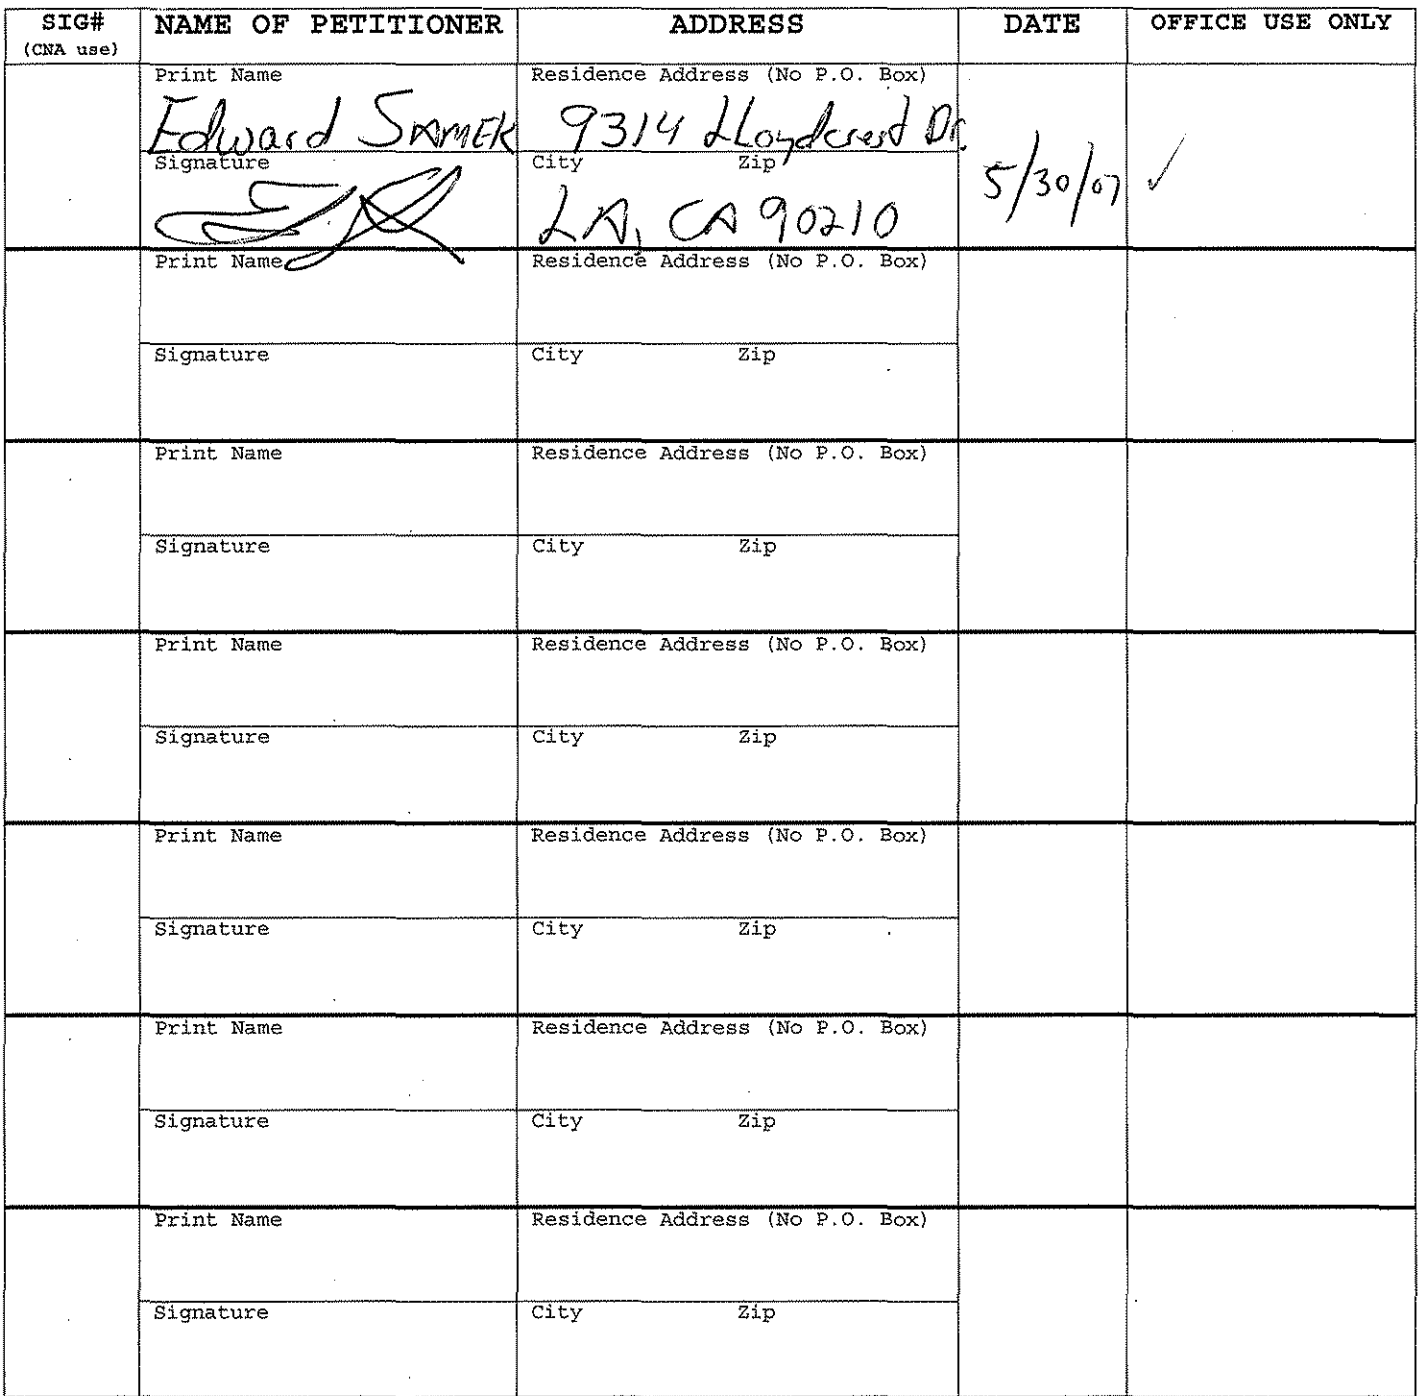 SIG# NAME OF PETITIONER ADDRESS DATE OFFICE USE ONLY
(CNA use)
Print Name Residence Address (No P.O. Box)
Edward SAMEK 9314 LLoydcrest Dr.
Signature City Zip
5/30/07 ✓
LA, CA 90210
Print Name Residence Address (No P.O. Box)
Signature City Zip
Print Name Residence Address (No P.O. Box)
Signature City Zip
Print Name Residence Address (No P.O. Box)
Signature City Zip
Print Name Residence Address (No P.O. Box)
Signature City Zip
Print Name Residence Address (No P.O. Box)
Signature City Zip
Print Name Residence Address (No P.O. Box)
Signature City Zip